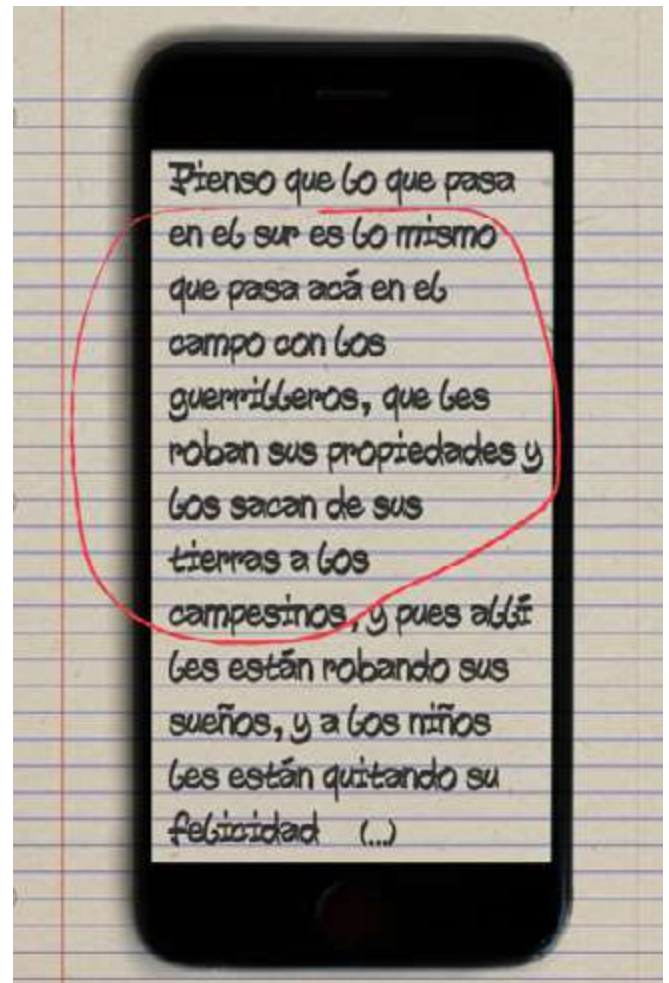 Pienso que lo que pasa
en el sur es lo mismo
que pasa acá en el
campo con los
guerrilleros, que les
roban sus propiedades y
los sacan de sus
tierras a los
campesinos, y pues allí
les están robando sus
sueños, y a los niños
les están quitando su
felicidad (...)